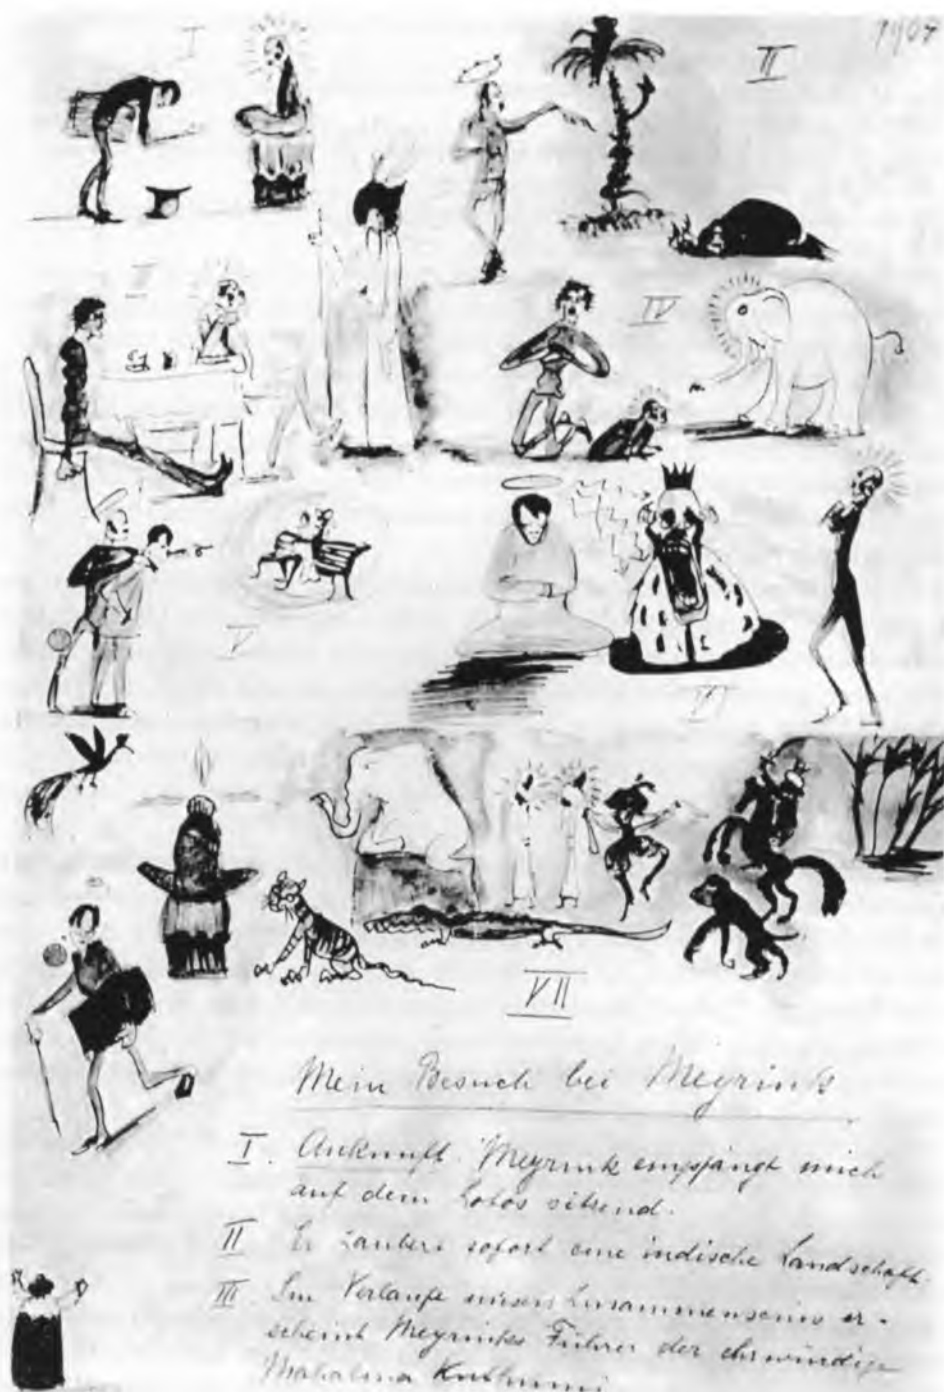 I
1907
II
III
IV
V
VI
VII
Mein Besuch bei Meyrink
I. Ankunft. Meyrink empfängt mich
auf dem Lotos sitzend.
II Er zaubert sofort eine indische Landschaft.
III. Im Verlaufe unseres Zusammenseins er-
scheint Meyrinks Führer der ehrwürdige
Mahatma Kuthumi